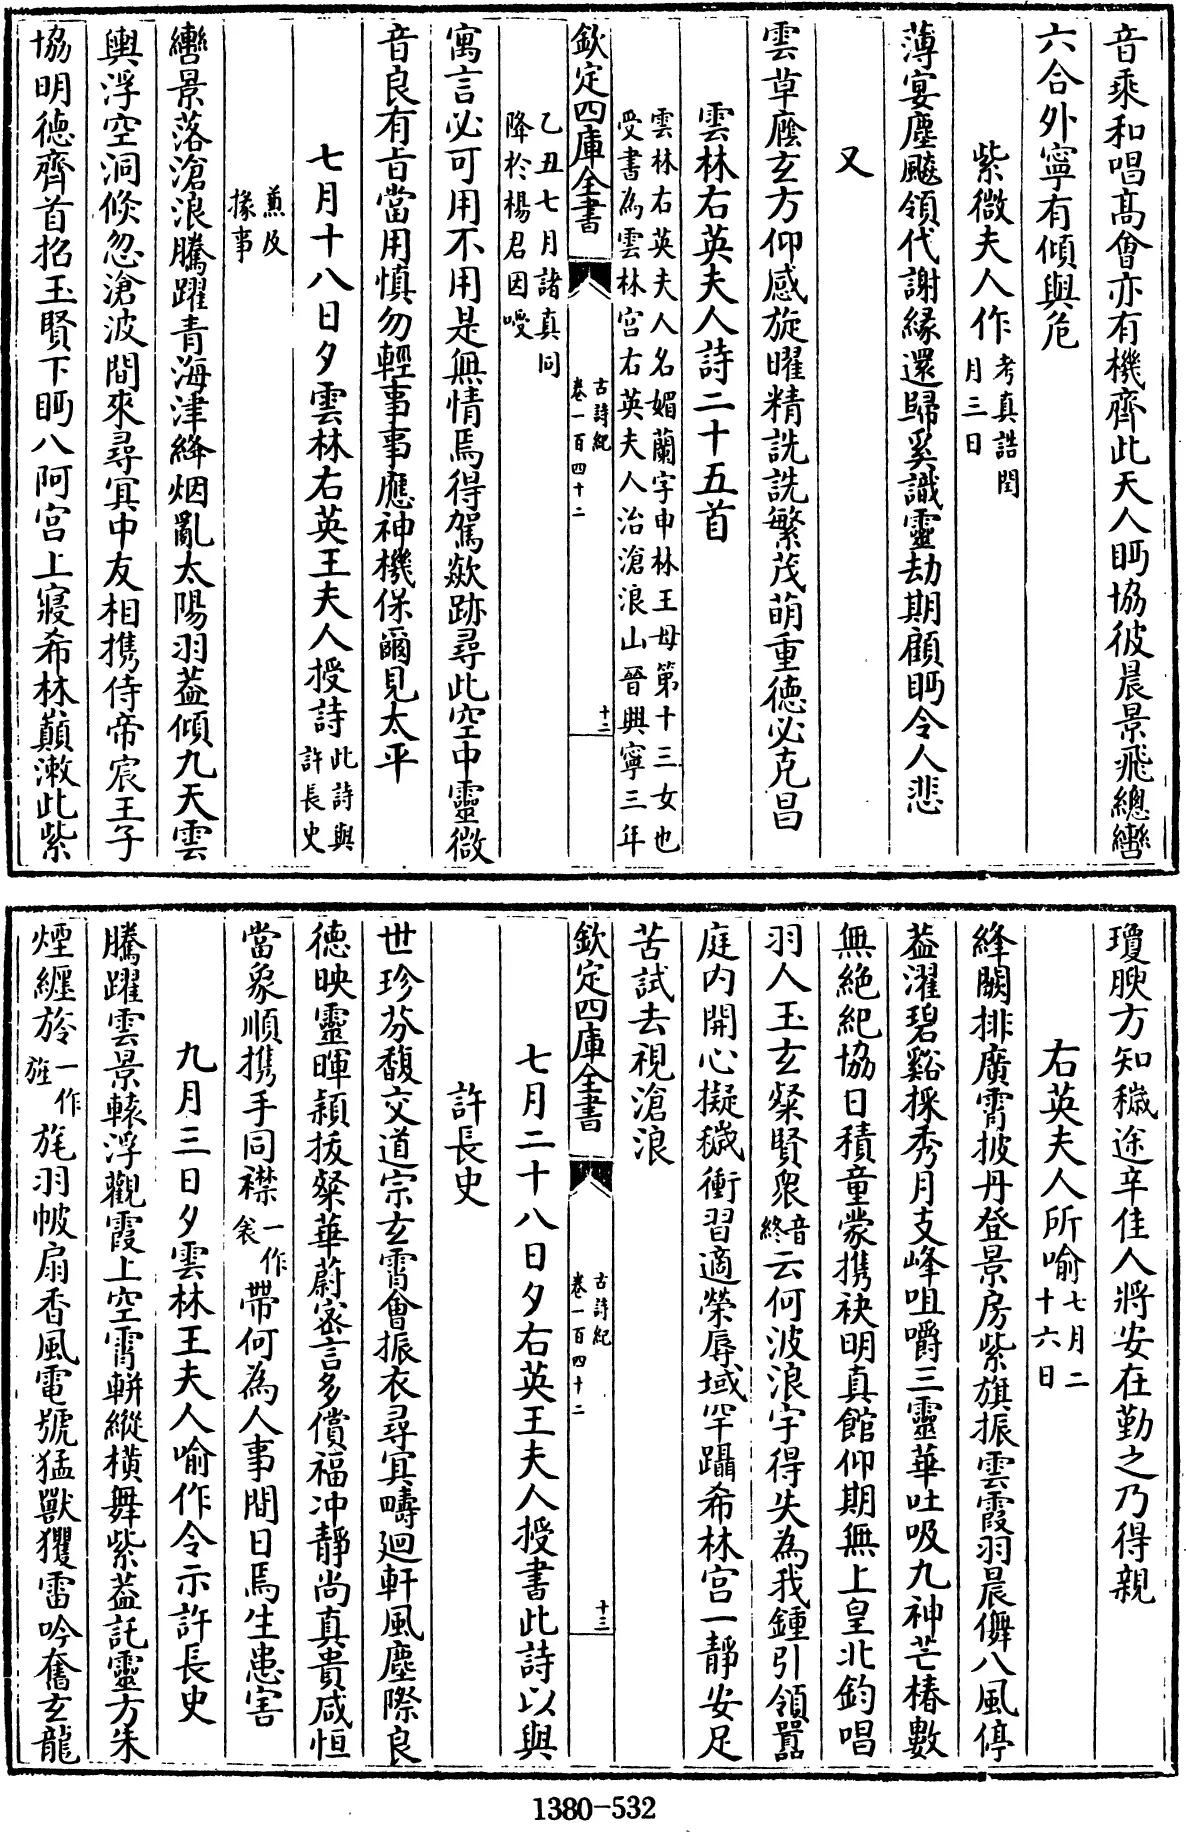 音乘和唱高會亦有機齊此天人眄協彼晨景飛總轡
六合外寧有傾與危
紫微夫人作考真誥閏月三日
薄宴塵飈領代謝緣還歸奚識靈劫期顧眄令人悲
又
雲草廕玄方仰感旋曜精詵詵繁茂萌重德必克昌
雲林右英夫人詩二十五首
雲林右英夫人名媚蘭字申林王母第十三女也
受書為雲林宮右英夫人治滄浪山晉興寧三年
欽定四庫全書 古詩紀 卷一百四十二 十二
乙丑七月諸真同
降於楊君因喥
寓言必可用不用是無情焉得駕欻跡尋此空中靈微
音良有㫖當用慎勿輕事事應神機保爾見太平
七月十八日夕雲林右英王夫人授詩此詩與許長史
兼及
掾事
轡景落滄浪騰躍青海津絳烟亂太陽羽葢傾九天雲
輿浮空洞倐忽滄波間來尋冥中友相携侍帝宸王子
協明德齊首招玉賢下眄八阿宮上寢希林巔漱此紫
瓊腴方知穢途辛佳人將安在勤之乃得親
右英夫人所喻七月二十六日
絳闕排廣霄披丹登景房紫旗振雲霞羽晨儛八風停
葢濯碧谿採秀月支峰咀嚼三靈華吐吸九神芒椿數
無絶紀協日積童蒙携袂明真館仰期無上皇北鈞唱
羽人玉玄粲賢衆音終云何波浪宇得失為我鍾引領囂
庭内開心擬穢衝習適榮辱域罕躡希林宮一靜安足
苦試去視滄浪
欽定四庫全書 古詩紀 卷一百四十二 十三
七月二十八日夕右英王夫人授書此詩以與
許長史
世珍芬馥交道宗玄霄會振衣尋冥疇廻軒風塵際良
德映靈暉頴拔粲華蔚密言多償福冲靜尚真貴咸恒
當象順携手同襟一作衾帶何為人事間日焉生患害
九月三日夕雲林王夫人喻作令示許長史
騰躍雲景轅浮觀霞上空霄軿縱橫舞紫葢託靈方朱
煙纒旍一作旌旄羽帔扇香風電號猛獸玃雷吟奮玄龍
1380-532